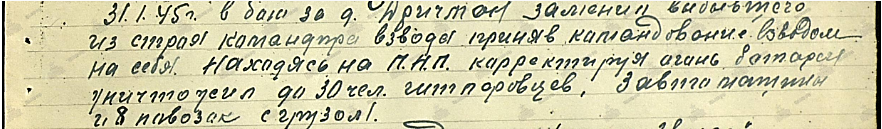 31.1.45г. в бою за д. Дричмен заменил выбывшего
из строя командира взвода приняв командование взводом
на себя. Находясь на П.Н.П. корректируя огонь батареи
уничтожил до 30 чел. гитлеровцев, 3 автоматчики
и 8 повозок с грузом.